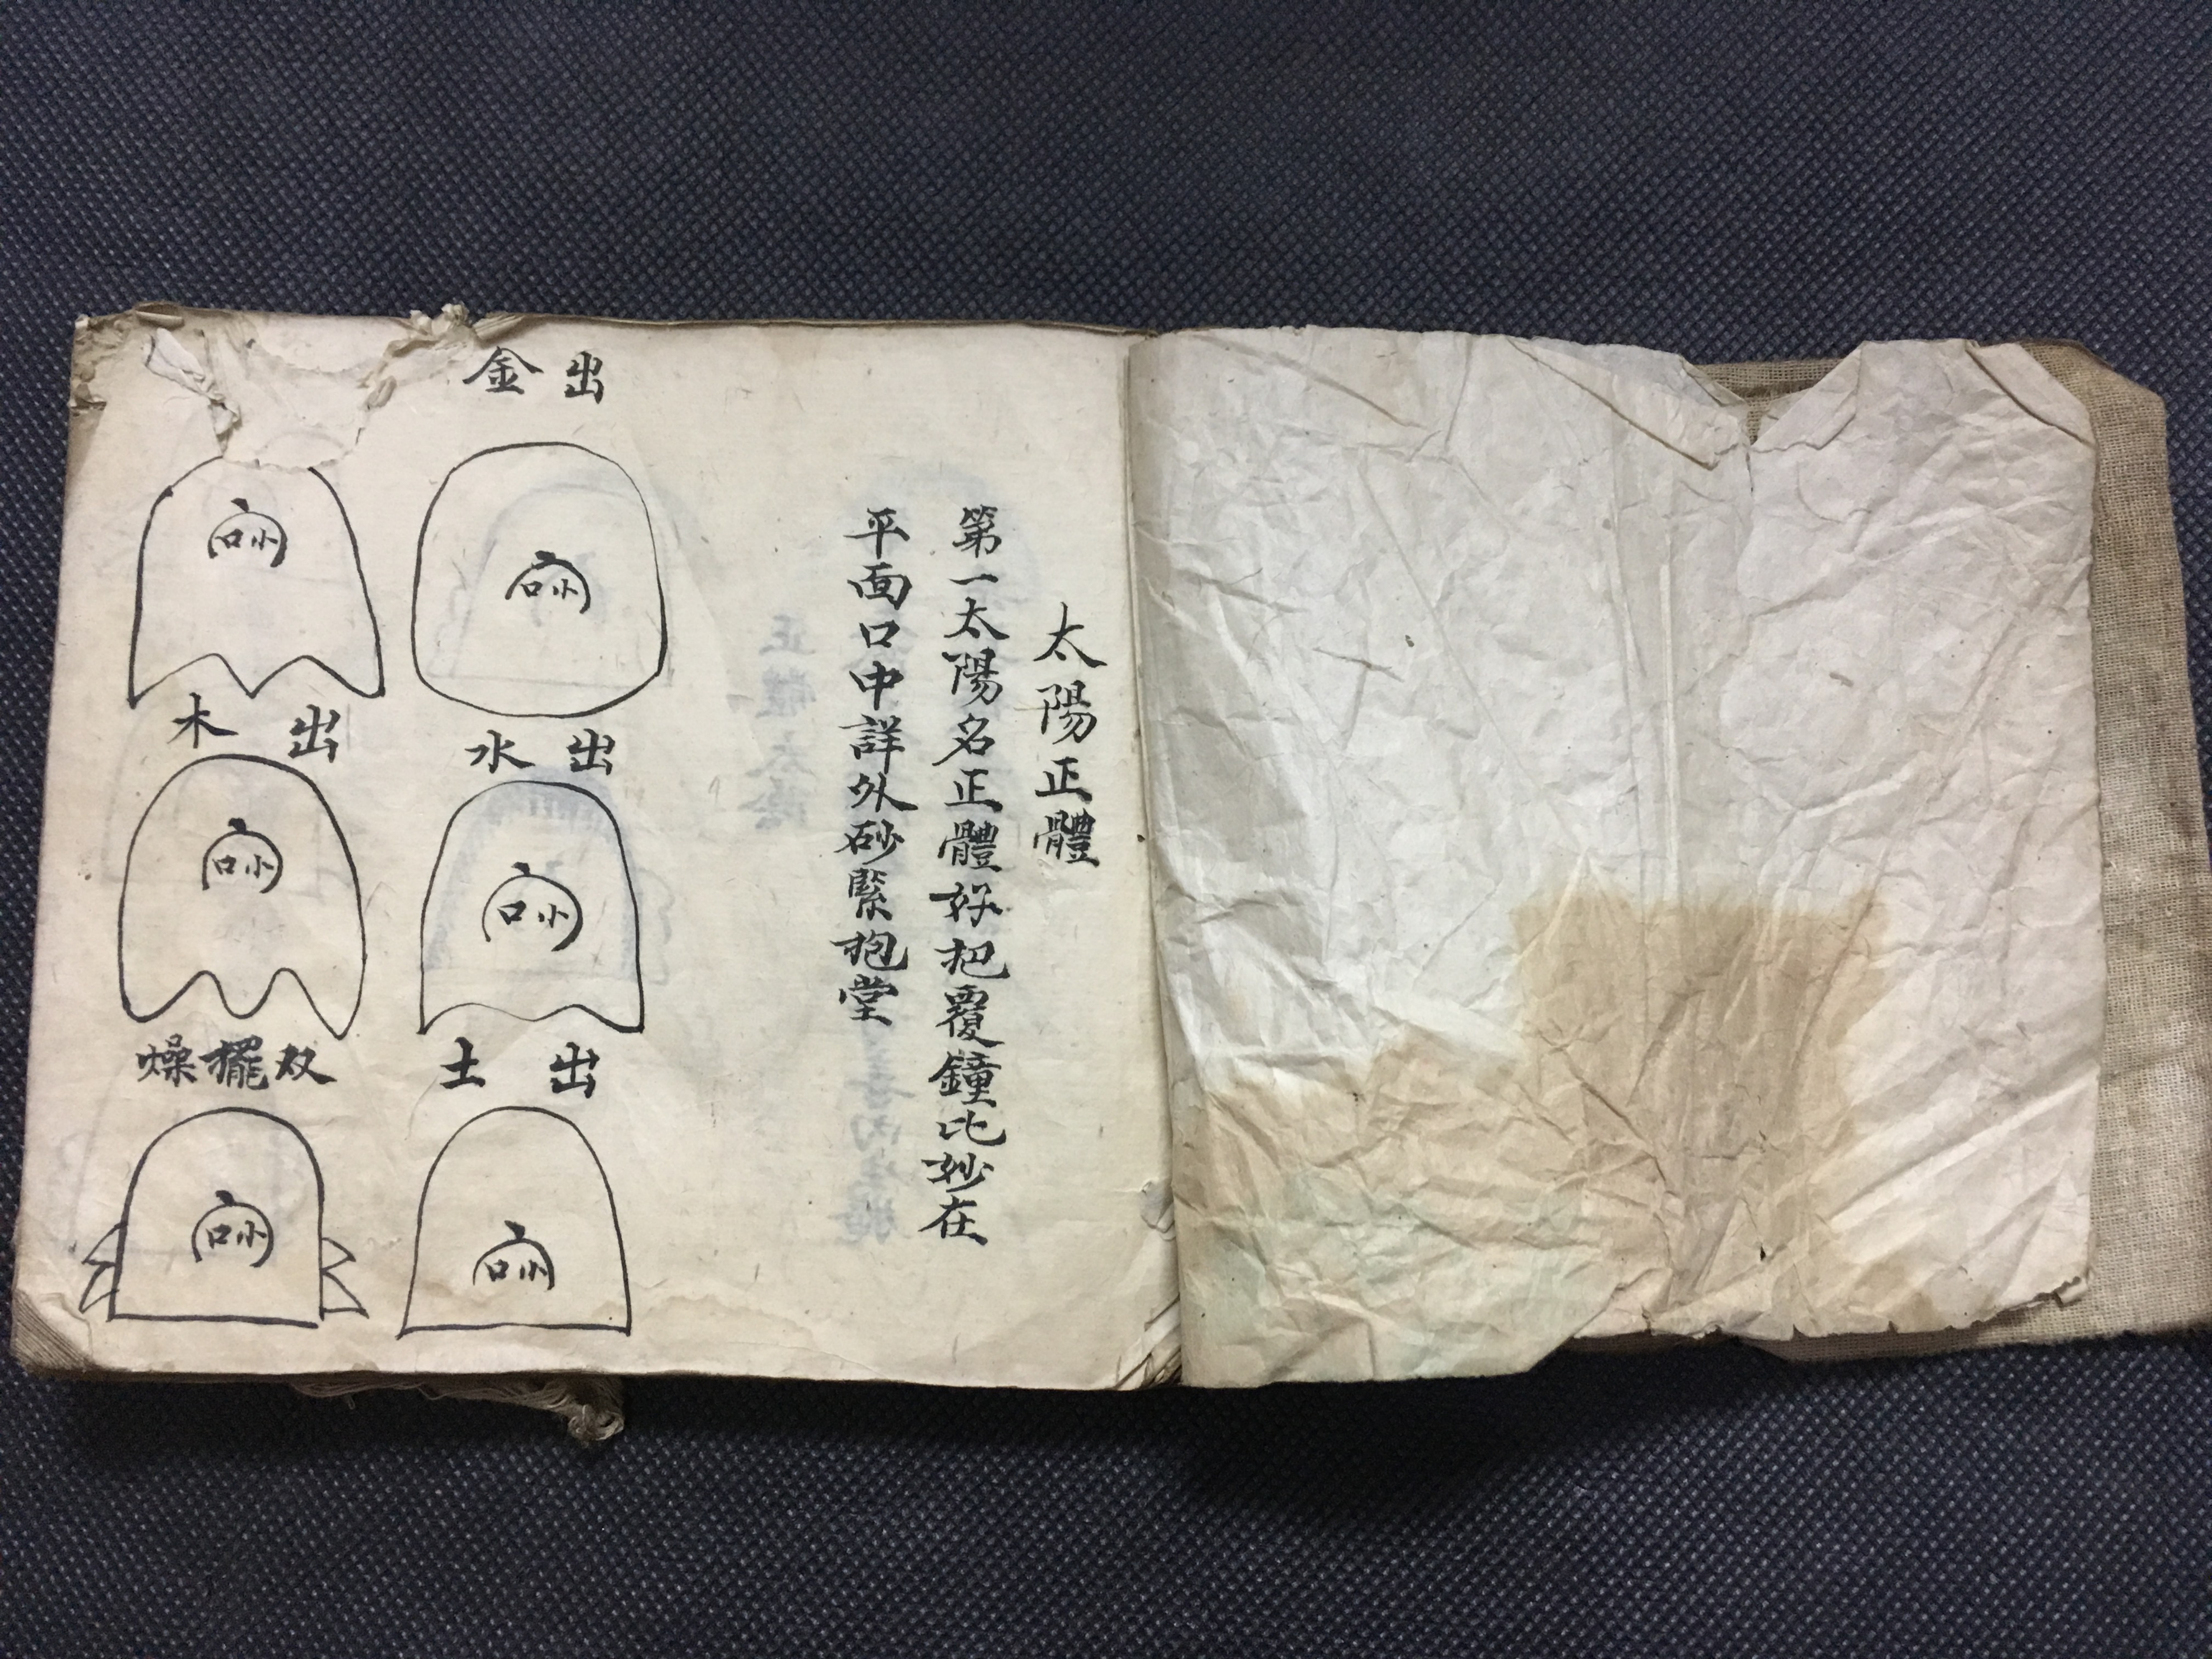 太陽正體
第一太陽名正體好把覆鐘比妙在
平面口中詳外砂緊抱堂
出金
出水
出土
出木
双擺燥
口小
口小
口小
口小
口小
口小